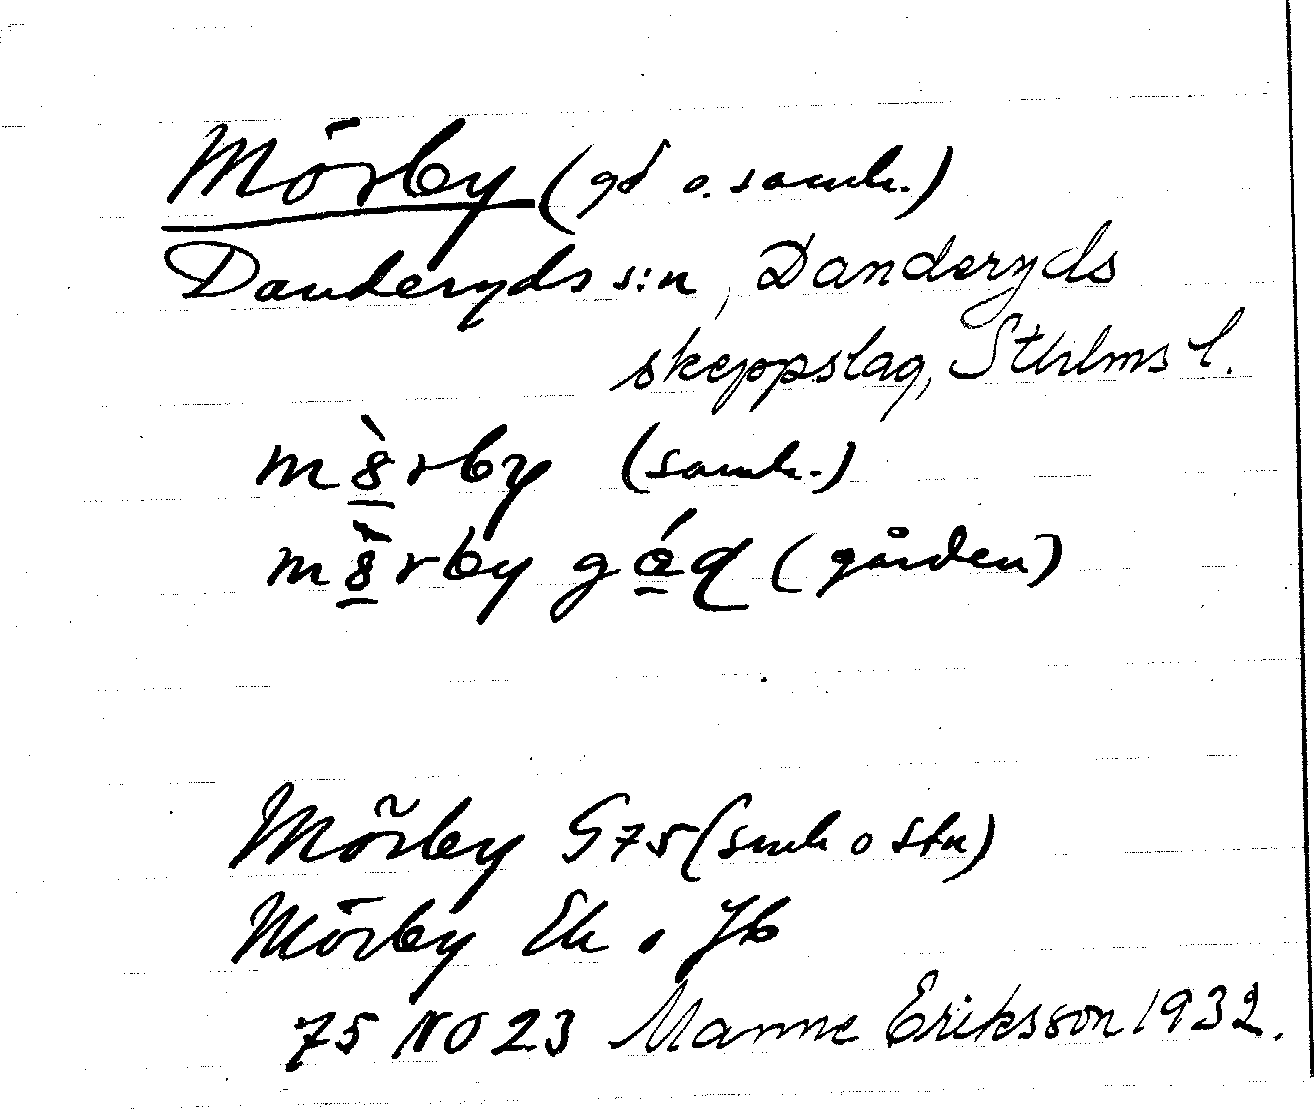 Mörby (gd o. samh.)
Danderyds s:n, Danderyds
skeppslag, Sthlms l.
m8̱̀rby (samh.)
m8̱̀rby gá̱ḍ (gården)
Mörby G75 (smh o stn)
Mörby Ek o Jb
75 NO 23 Manne Eriksson 1932.